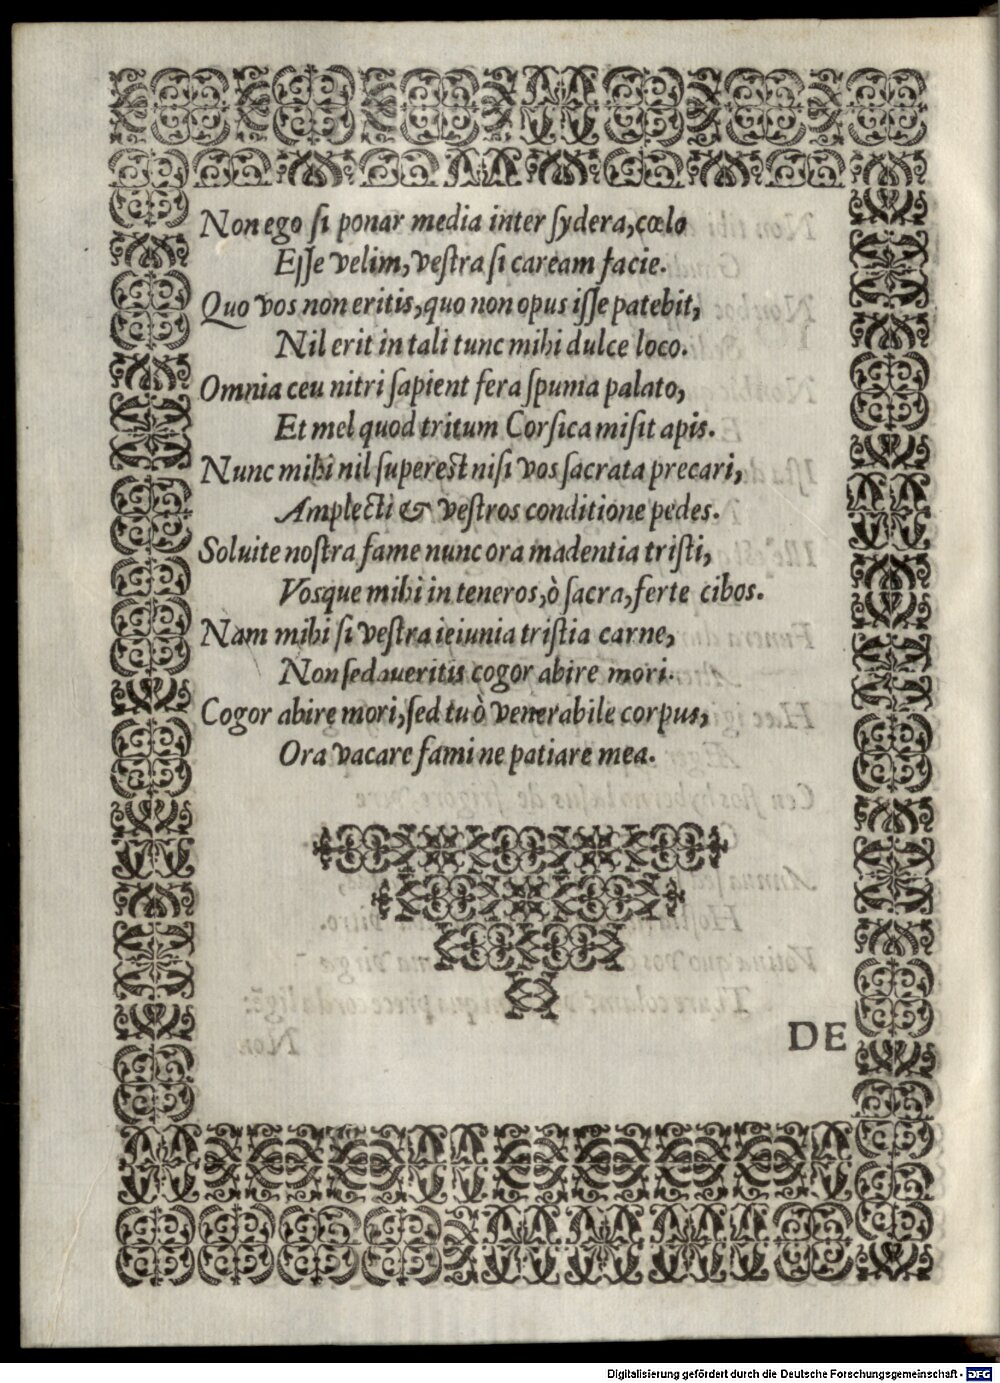 Non ego si ponar media inter sydera, cœlo
Esse velim, vestra si caream facie.
Quo vos non eritis, quo non opus isse patebit,
Nil erit in tali tunc mihi dulce loco.
Omnia ceu nitri sapient fera spuma palato,
Et mel quod tritum Corsica misit apis.
Nunc mihi nil superest nisi vos sacrata precari,
Amplecti & vestros conditione pedes.
Soluite nostra fame nunc ora madentia tristi,
Vosque mihi in teneros, ò sacra, ferte cibos.
Nam mihi si vestra ieiunia tristia carne,
Non sedaueritis cogor abire mori.
Cogor abire mori, sed tu ò venerabile corpus,
Ora vacare fami ne patiare mea.
DE
Digitalisierung gefördert durch die Deutsche Forschungsgemeinschaft - DFG